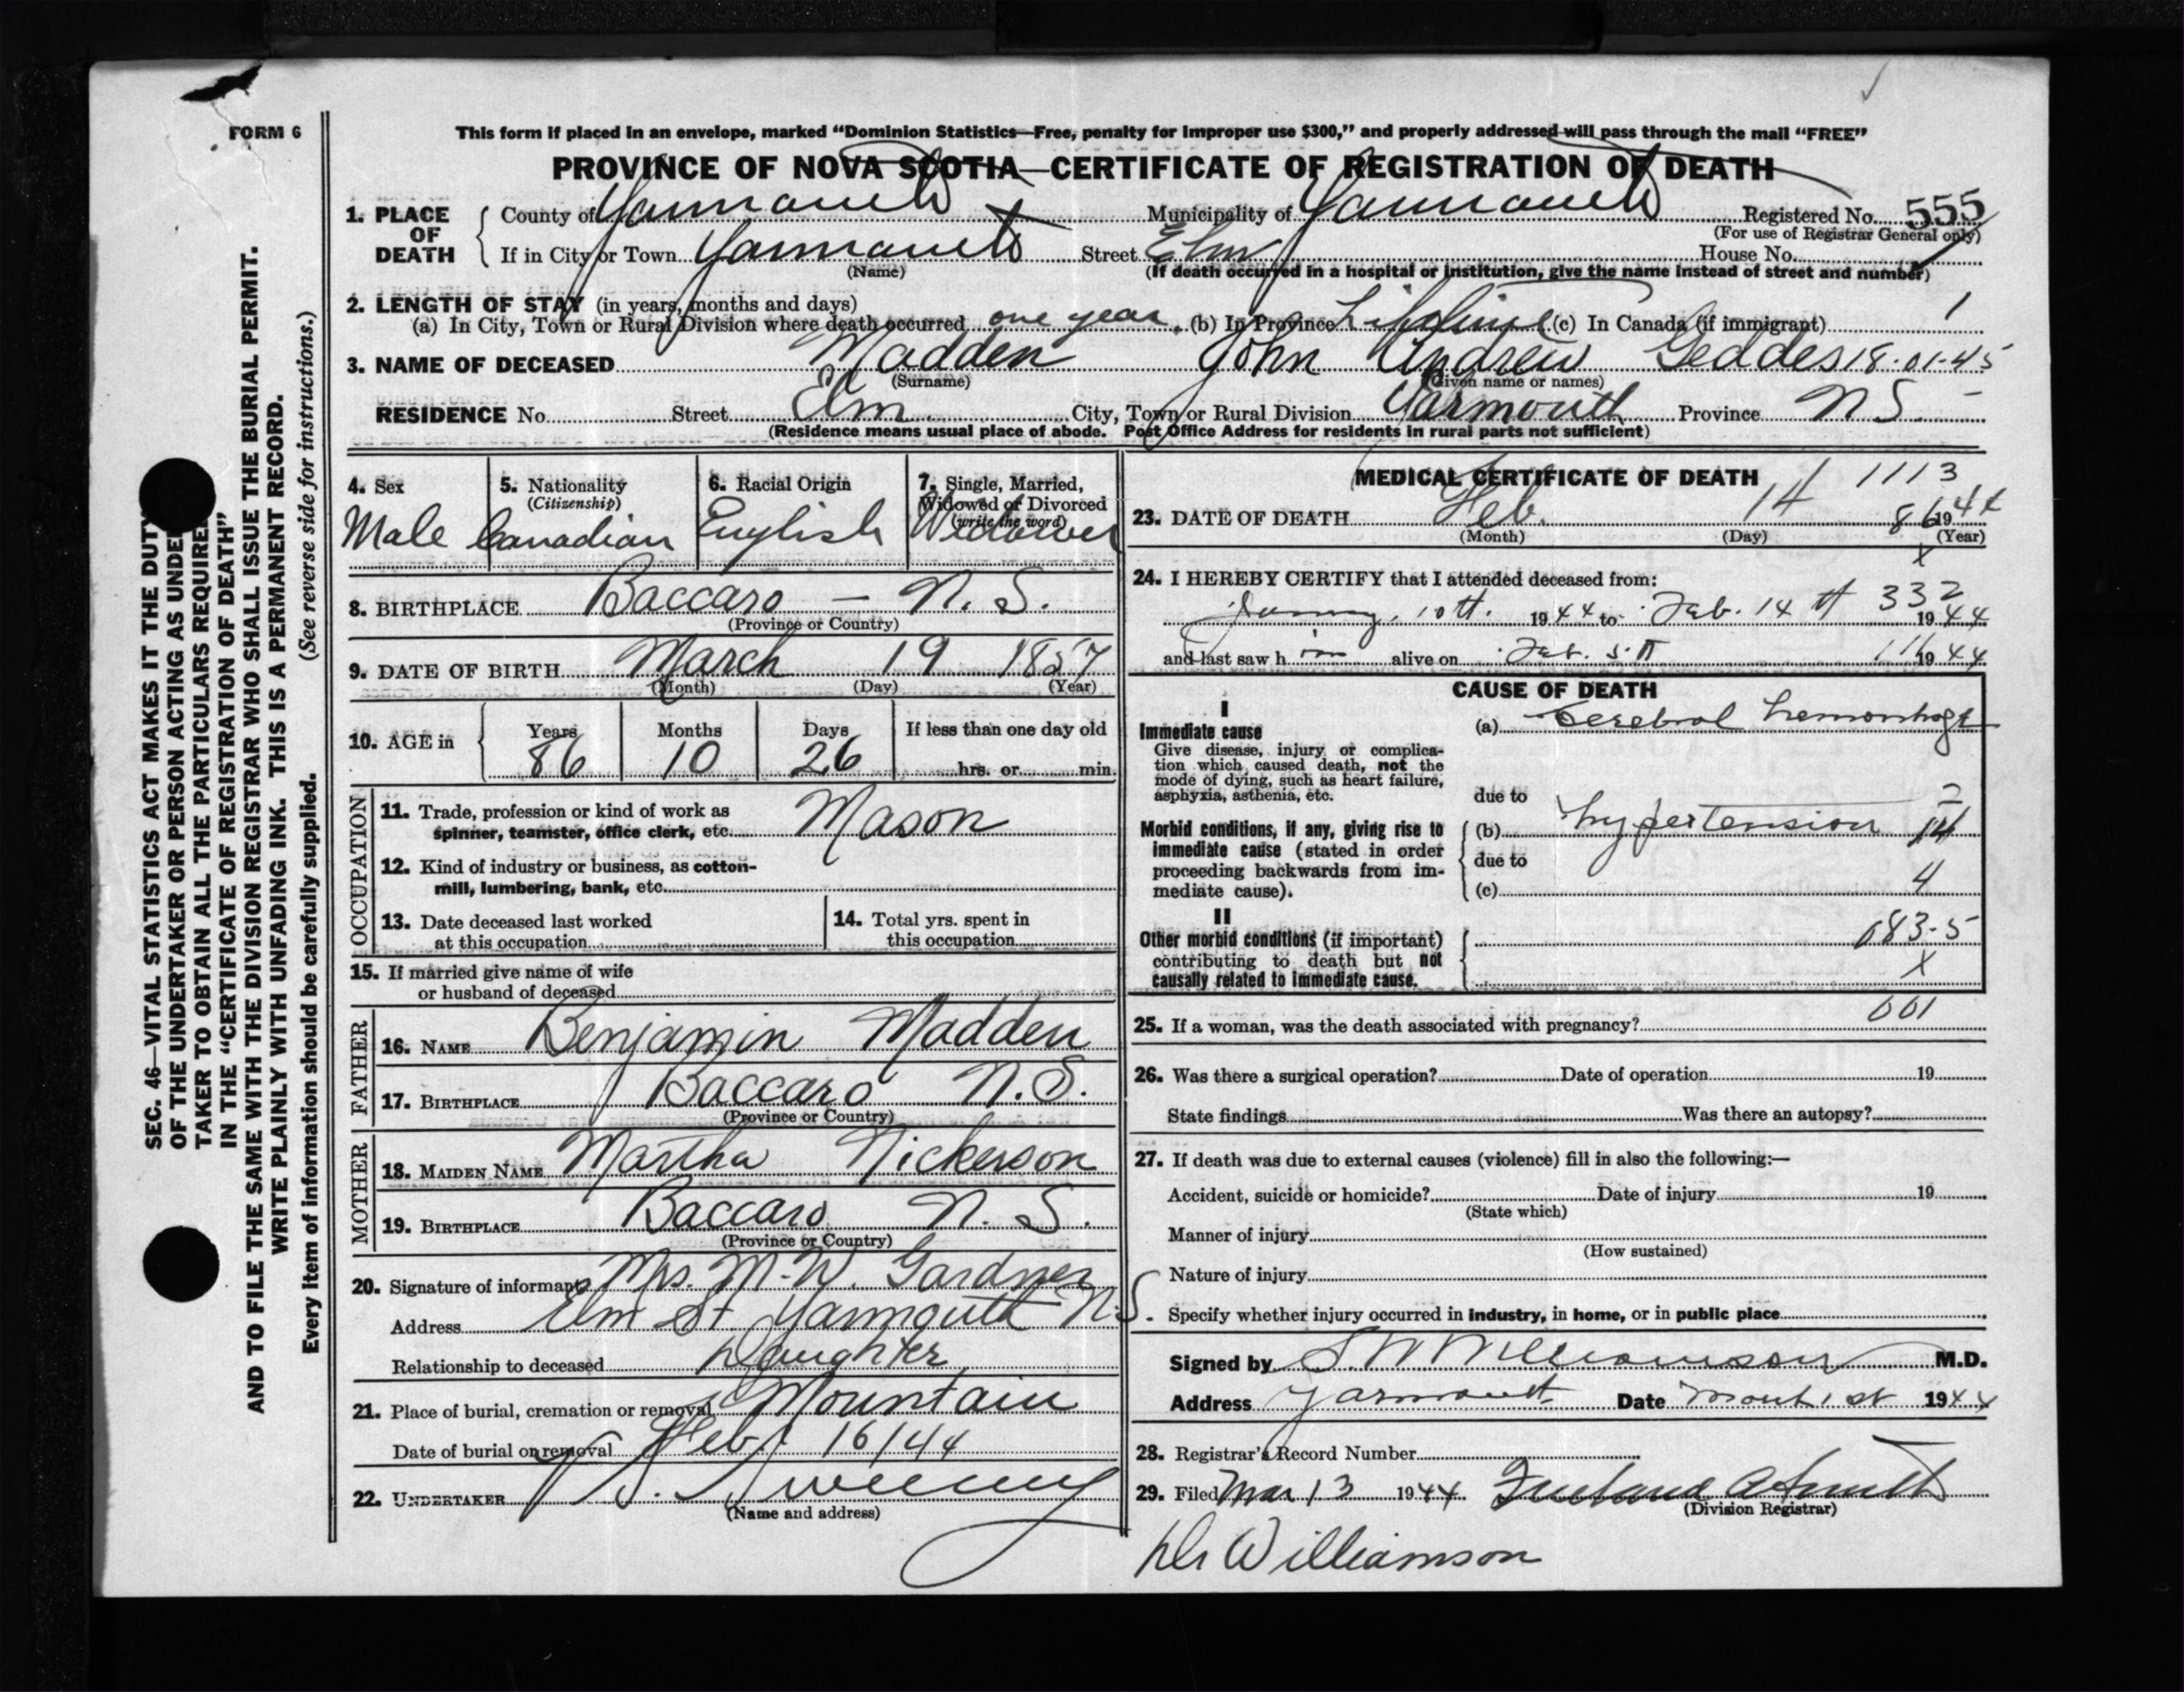 FORM 6
This form if placed in an envelope, marked "Dominion Statistics—Free, penalty for improper use $300," and properly addressed will pass through the mail "FREE"
PROVINCE OF NOVA SCOTIA—CERTIFICATE OF REGISTRATION OF DEATH
1. PLACE OF DEATH County of Yarmouth Municipality of Yarmouth Registered No. 555
(For use of Registrar General only)
If in City or Town Yarmouth Street Elm House No.
(Name) (If death occurred in a hospital or institution, give the name instead of street and number)
2. LENGTH OF STAY (in years, months and days)
(a) In City, Town or Rural Division where death occurred one year (b) In Province Lifetime (c) In Canada (if immigrant) 1
3. NAME OF DECEASED Madden John Andrew Geddes 18-01-45
(Surname) (Given name or names)
RESIDENCE No. Street Elm City, Town or Rural Division Yarmouth Province N S.
(Residence means usual place of abode. Post Office Address for residents in rural parts not sufficient)
4. Sex 5. Nationality (Citizenship) 6. Racial Origin 7. Single, Married, Widowed or Divorced (write the word)
Male Canadian English Widower
8. BIRTHPLACE Baccaro — N. S.
(Province or Country)
9. DATE OF BIRTH March 19 1857
(Month) (Day) (Year)
10. AGE in Years Months Days If less than one day old
86 10 26 hrs. or min.
OCCUPATION
11. Trade, profession or kind of work as spinner, teamster, office clerk, etc. Mason
12. Kind of industry or business, as cotton-mill, lumbering, bank, etc.
13. Date deceased last worked at this occupation
14. Total yrs. spent in this occupation
15. If married give name of wife or husband of deceased
FATHER
16. NAME Benjamin Madden
17. BIRTHPLACE Baccaro N.S.
(Province or Country)
MOTHER
18. MAIDEN NAME Martha Nickerson
19. BIRTHPLACE Baccaro N. S.
(Province or Country)
20. Signature of informant Mrs. M. W. Gardner
Address Elm St Yarmouth N.S.
Relationship to deceased Daughter
21. Place of burial, cremation or removal Mountain
Date of burial or removal Feb. 16/44
22. UNDERTAKER Sweeny
(Name and address)
MEDICAL CERTIFICATE OF DEATH 1113
23. DATE OF DEATH Feb. 14 86 1944
(Month) (Day) (Year)
X
24. I HEREBY CERTIFY that I attended deceased from:
10th. 1944 to Feb. 14th 332 1944
and last saw h im alive on Feb. 5th 1944
CAUSE OF DEATH
I
Immediate cause
Give disease, injury or complication which caused death, not the mode of dying, such as heart failure, asphyxia, asthenia, etc.
(a) Cerebral hemorrhage
due to
Morbid conditions, if any, giving rise to immediate cause (stated in order proceeding backwards from immediate cause).
(b) hypertension
due to
(c) 4
II
Other morbid conditions (if important) contributing to death but not causally related to immediate cause.
083-5
X
25. If a woman, was the death associated with pregnancy? 001
26. Was there a surgical operation? Date of operation 19
State findings Was there an autopsy?
27. If death was due to external causes (violence) fill in also the following:—
Accident, suicide or homicide? Date of injury 19
(State which)
Manner of injury
(How sustained)
Nature of injury
Specify whether injury occurred in industry, in home, or in public place
Signed by S. W Williamson M.D.
Address Yarmouth Date 1st 1944
28. Registrar's Record Number
29. Filed Mar 13 1944
(Division Registrar)
Dr Williamson
SEC. 46—VITAL STATISTICS ACT MAKES IT THE DUTY
OF THE UNDERTAKER OR PERSON ACTING AS UNDE
TAKER TO OBTAIN ALL THE PARTICULARS REQUIRE
IN THE "CERTIFICATE OF REGISTRATION OF DEATH"
AND TO FILE THE SAME WITH THE DIVISION REGISTRAR WHO SHALL ISSUE THE BURIAL PERMIT.
WRITE PLAINLY WITH UNFADING INK. THIS IS A PERMANENT RECORD.
Every item of information should be carefully supplied. (See reverse side for instructions.)